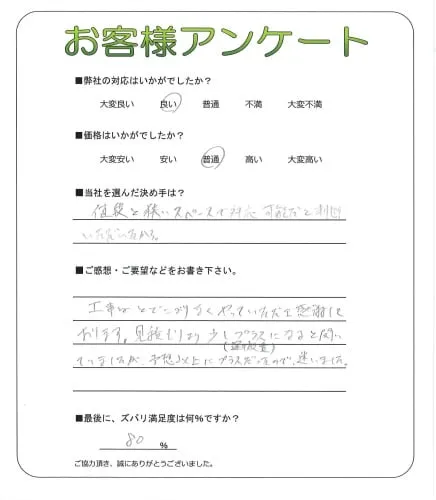 お客様アンケート
■弊社の対応はいかがでしたか？
大変良い 良い 普通 不満 大変不満
■価格はいかがでしたか？
大変安い 安い 普通 高い 大変高い
■当社を選んだ決め手は？
値段と狭いスペースで対応可能だと判断
いただいたから。
■ご感想・ご要望などをお書き下さい。
工事はとどこおりなくやっていただき感謝して
おります。見積りより少しプラスになると伺っ
(運搬費)
ていましたが、予想以上にプラスだったので、迷いました。
■最後に、ズバリ満足度は何%ですか？
80 %
ご協力頂き、誠にありがとうございました。